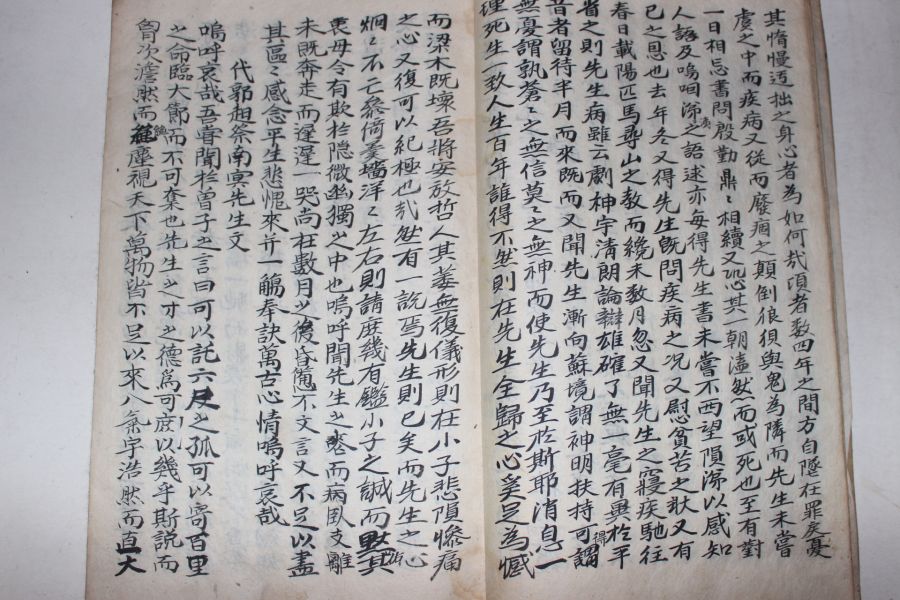 其惰慢迂拙之身心者為如何哉頃者数四年之間方自隊在罪戾憂
虞之中而疾病又從而廢痼之顛倒狼狽與鬼為隣而先生未嘗
一日相忘書問殷勤鼎〻相續又恐其一朝溘然而或死也至有對
人語及嗚咽涕之語迷亦每得先生書未嘗不西望隕涕以感知
已之恩也去年冬又得先生旣問疾病之况又慰貧苦之狀又有
春日載陽匹馬尋山之敎而纔未數月忽又聞先生之寢疾馳往
省之則先生病雖云劇神宇清朗論辯雄確了無一毫有異於平
昔者留待半月而來既而又聞先生漸向蘇境謂神明扶持可謂得
無憂謂孰蒼〻之無信莫〻之無神而使先生乃至於斯耶消息一
理死生一致人生百年誰得不然則在先生全歸之心奚足為憾
而梁木既壞吾將安放哲人其萎無復儀形則在小子悲隕慘痛
之心又復可以紀極也哉然有一說焉先生則已矣而先生之心
炯〻不亡參倚羹墻洋〻左右則請庶幾有鑑小子之誠而默其
喪毋令有欺於隐微幽獨之中也嗚呼聞先生之而病卧支離
未既奔走而遲遲一哭尚在數月之後昏憊不文言又不足以盡
其區〻感念平生悲愧來斤一觴奉訣萬古心情嗚呼哀哉
代郭趄祭南冥先生文
嗚呼哀哉吾嘗聞於曾子之言曰可以託六尺之孤可以寄百里
之命臨大節而不可奪也先生之才之德為可庶以幾乎斯說而
胷次澹然而塵視天下萬物皆不足以來入氣宇浩然而直大